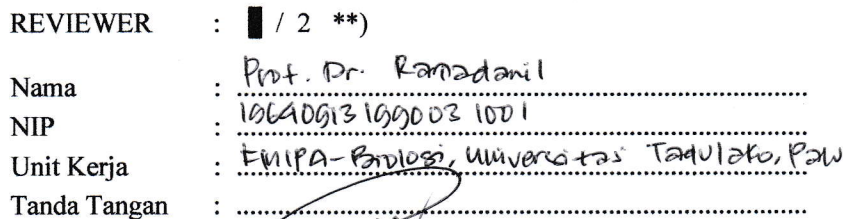 REVIEWER : / 2 **)
Nama : Prof. Dr. Ramadanil
NIP : 19640913 199003 1001
Unit Kerja : FMIPA-Biologi, Universitas Tadulako, Palu
Tanda Tangan :